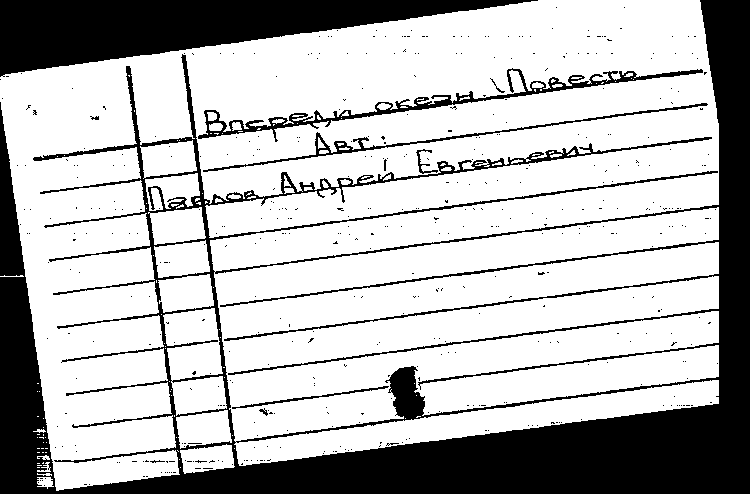 Впереди океан \Повесть
Авт.:
Павлов, Андрей Евгеньевич